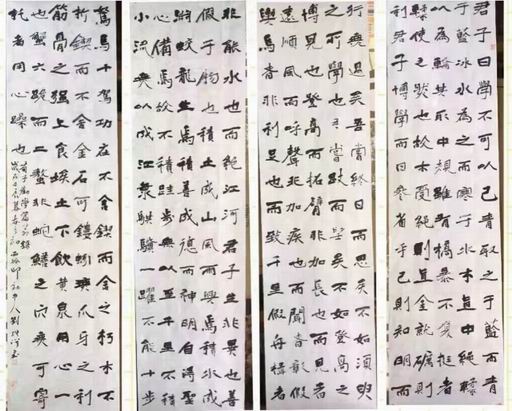 君子曰學不可以已青取之于藍而青
于藍冰水為之而寒于水木直中繩輮
以為輪其曲中規雖有槁暴不復挺者
輮使之然也故木受繩則直金就礪則
利君子博學而日參省乎己則知明而
行無過矣吾嘗終日而思矣不如須臾
之所學也吾嘗跂而望矣不如登高之
博見也登高而招臂非加長也而見者
遠順風而呼聲非加疾也而聞者彰假
輿馬者非利足也而致千里假舟楫者
非能水也而絕江河君子生非異也善
假于物也積土成山風雨興焉積水成
淵蛟龍生焉積善成德而神明自得聖
心備焉故不積跬步無以致千里不積
小流無以成江海騏驥一躍不能十步
駑馬十駕功在不舍鍥而舍之朽木不
折鍥而不舍金石可鏤蚓無爪牙之利
筋骨之强上食埃土下飲黃泉用心一
也蟹六跪而二螯非蛇鱔之穴無可寄
託者用心躁也
荀子勸學篇節錄